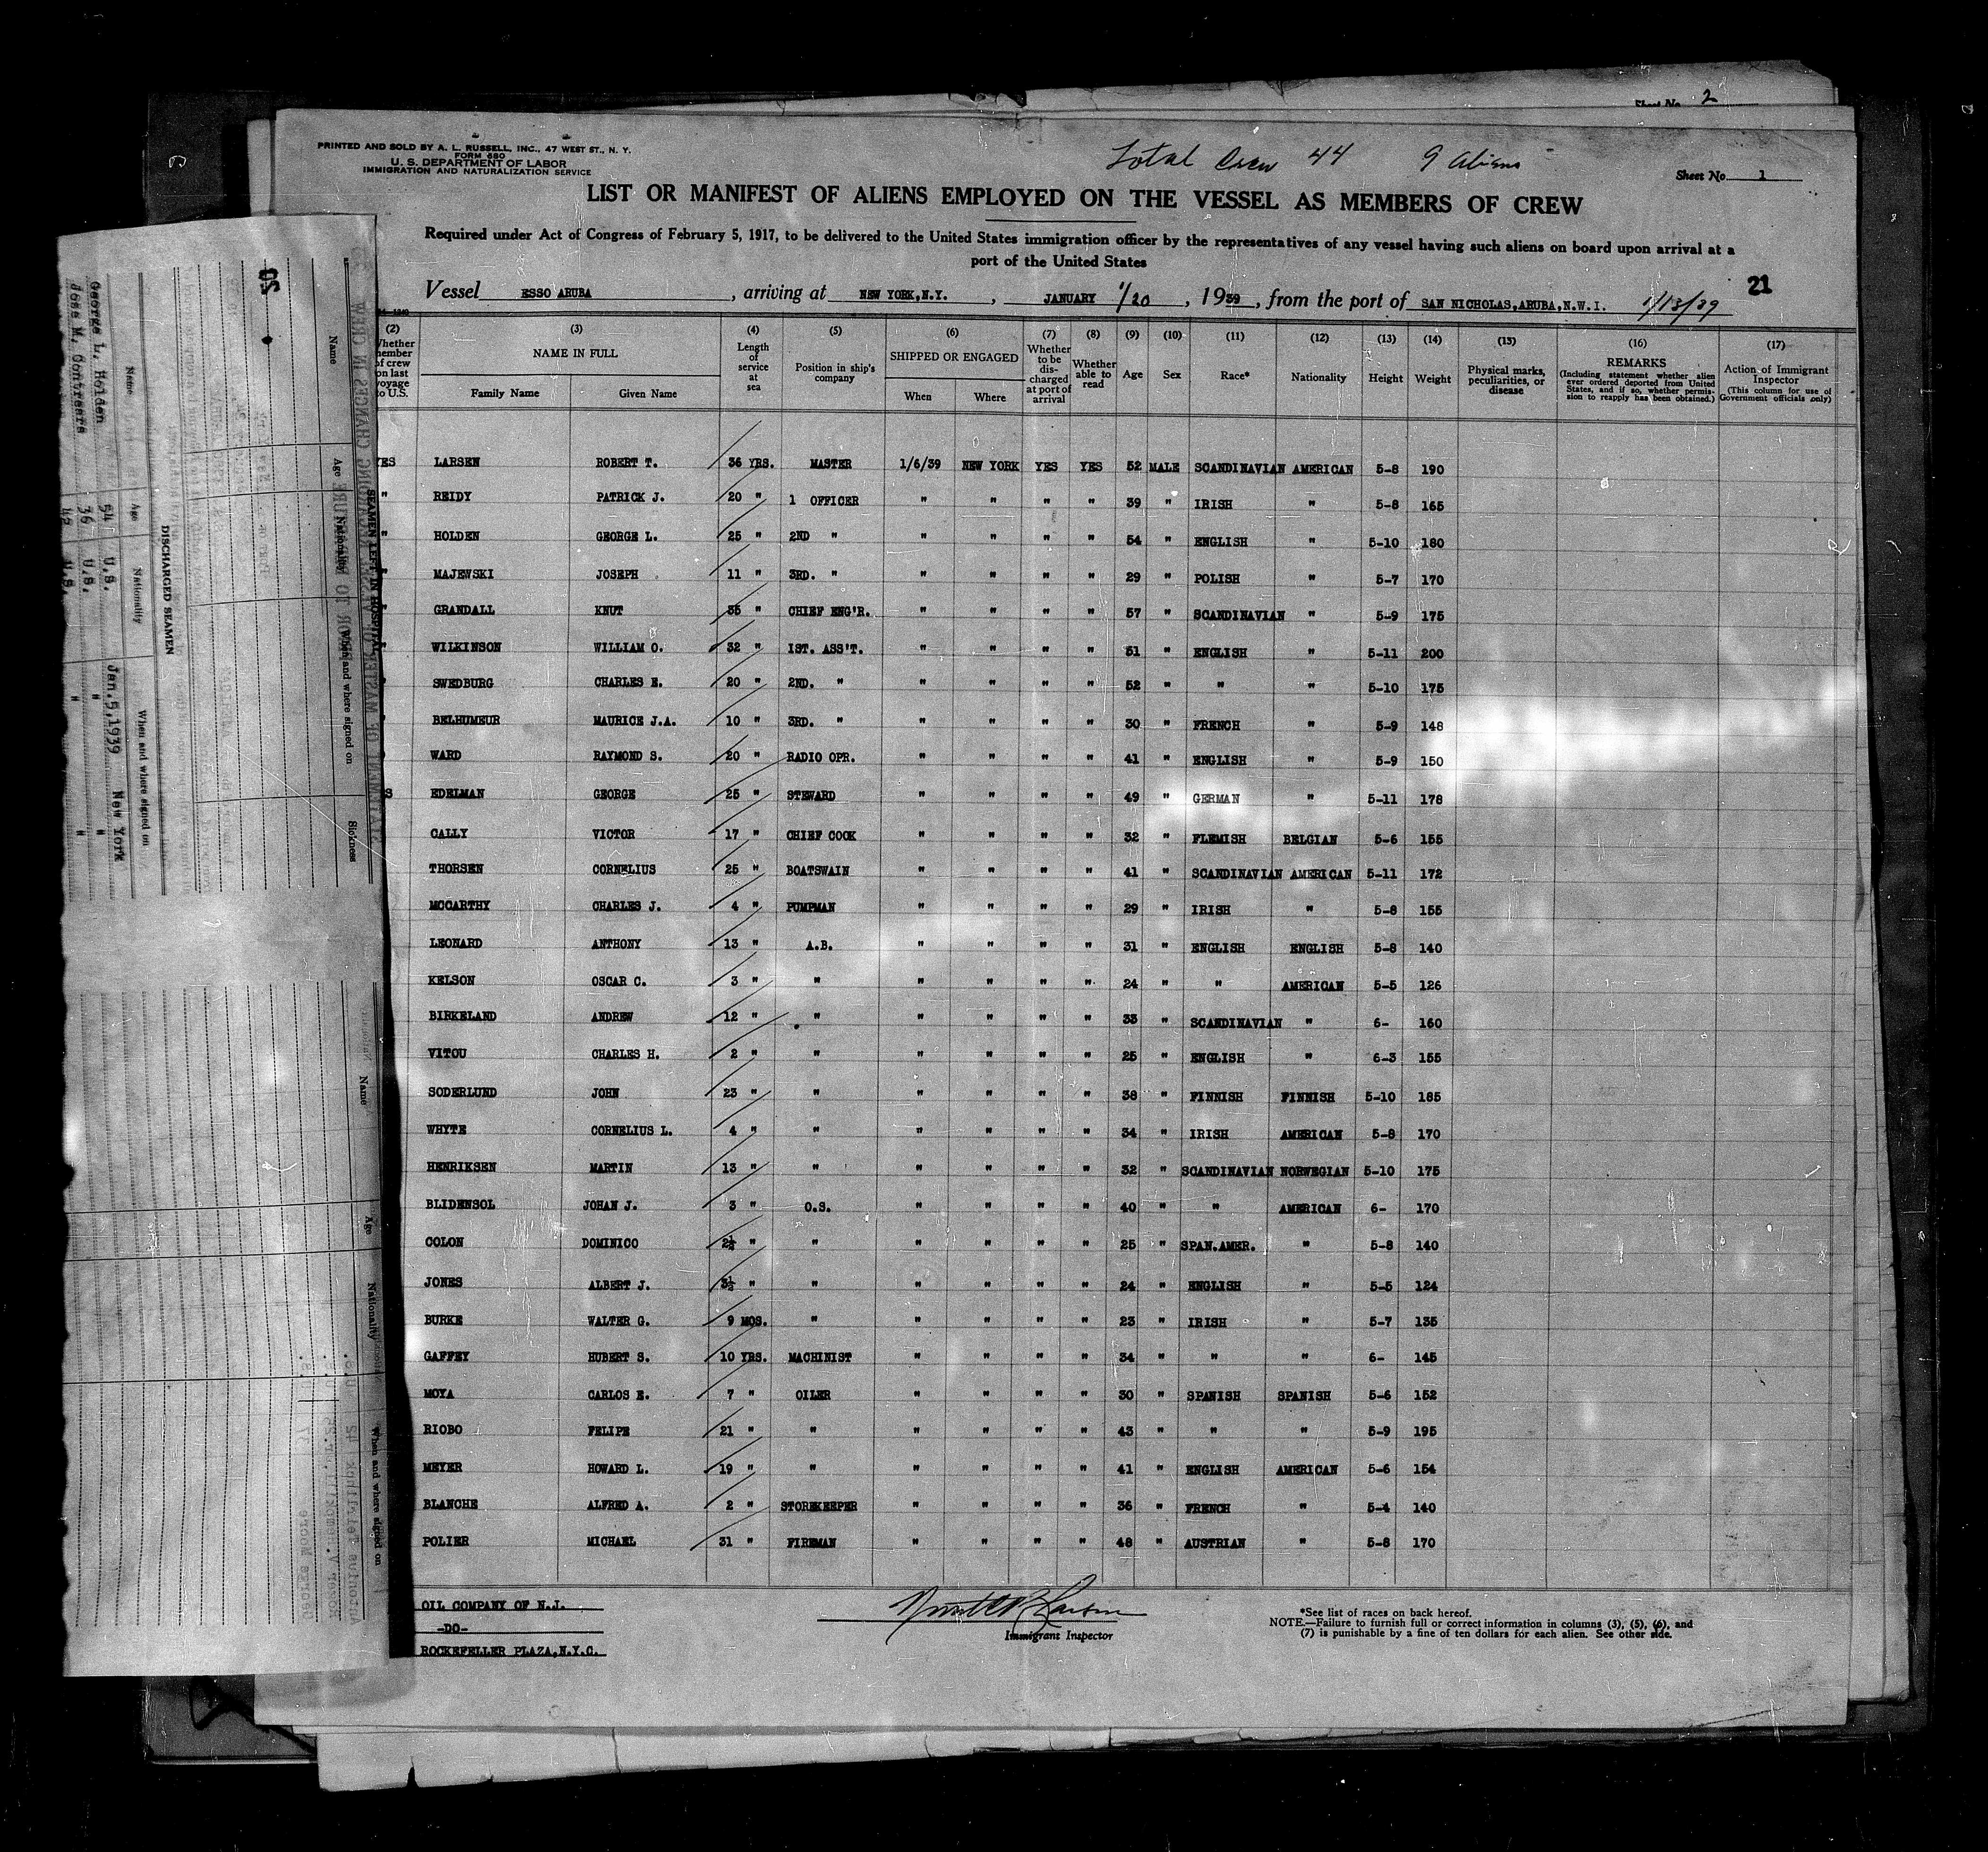 Sheet No. 2
PRINTED AND SOLD BY A. L. RUSSELL, INC., 47 WEST ST., N. Y.
FORM 680
U. S. DEPARTMENT OF LABOR
IMMIGRATION AND NATURALIZATION SERVICE
Total Crew 44 9 Aliens
Sheet No. 1
LIST OR MANIFEST OF ALIENS EMPLOYED ON THE VESSEL AS MEMBERS OF CREW
Required under Act of Congress of February 5, 1917, to be delivered to the United States immigration officer by the representatives of any vessel having such aliens on board upon arrival at a
port of the United States
21
Vessel ESSO ARUBA, arriving at NEW YORK,N.Y., JANUARY 1/20, 1939, from the port of SAN NICHOLAS,ARUBA,N.W.I. 1/13/39
(2) (3) (4) (5) (6) (7) (8) (9) (10) (11) (12) (13) (14) (15) (16) (17)
Whether member of crew on last voyage to U.S. NAME IN FULL Family Name Given Name Length of service at sea Position in ship's company SHIPPED OR ENGAGED When Where Whether to be discharged at port of arrival Whether able to read Age Sex Race* Nationality Height Weight Physical marks, peculiarities, or disease REMARKS (Including statement whether alien ever ordered deported from United States, and if so, whether permission to reapply has been obtained.) Action of Immigrant Inspector (This column for use of Government officials only)
YES LARSEN ROBERT T. 36 YRS. MASTER 1/6/39 NEW YORK YES YES 52 MALE SCANDINAVIAN AMERICAN 5-8 190
" REIDY PATRICK J. 20 " 1 OFFICER " " " " 39 " IRISH " 5-8 165
" HOLDEN GEORGE L. 25 " 2ND " " " " " 54 " ENGLISH " 5-10 180
" MAJEWSKI JOSEPH 11 " 3RD. " " " " " 29 " POLISH " 5-7 170
" GRANDALL KNUT 35 " CHIEF ENG'R. " " " " 57 " SCANDINAVIAN " 5-9 175
" WILKINSON WILLIAM O. 32 " 1ST. ASS'T. " " " " 51 " ENGLISH " 5-11 200
" SWEDBURG CHARLES E. 20 " 2ND. " " " " " 52 " " " 5-10 175
" BELHUMEUR MAURICE J.A. 10 " 3RD. " " " " " 30 " FRENCH " 5-9 148
WARD RAYMOND S. 20 " RADIO OPR. " " " " 41 " ENGLISH " 5-9 150
S EDELMAN GEORGE 25 " STEWARD " " " " 49 " GERMAN " 5-11 178
CALLY VICTOR 17 " CHIEF COOK " " " " 32 " FLEMISH BELGIAN 5-6 155
THORSEN CORNELIUS 25 " BOATSWAIN " " " " 41 " SCANDINAVIAN AMERICAN 5-11 172
MCCARTHY CHARLES J. 4 " PUMPMAN " " " " 29 " IRISH " 5-8 155
LEONARD ANTHONY 13 " A.B. " " " " 31 " ENGLISH ENGLISH 5-8 140
KELSON OSCAR C. 3 " " " " " " 24 " " AMERICAN 5-5 126
BIRKELAND ANDREW 12 " " " " " " 33 " SCANDINAVIAN " 6- 160
VITOU CHARLES H. 2 " " " " " " 25 " ENGLISH " 6-3 155
SODERLUND JOHN 23 " " " " " " 38 " FINNISH FINNISH 5-10 185
WHYTE CORNELIUS L. 4 " " " " " " 34 " IRISH AMERICAN 5-8 170
HENRIKSEN MARTIN 13 " " " " " " 32 " SCANDINAVIAN NORWEGIAN 5-10 175
BLIDENSOL JOHAN J. 3 " O.S. " " " " 40 " " AMERICAN 6- 170
COLON DOMINICO 2½ " " " " " " 25 " SPAN.AMER. " 5-8 140
JONES ALBERT J. 3½ " " " " " " 24 " ENGLISH " 5-5 124
BURKE WALTER G. 9 MOS. " " " " " 23 " IRISH " 5-7 135
GAFFEY HUBERT S. 10 YRS. MACHINIST " " " " 34 " " " 6- 145
MOYA CARLOS E. 7 " OILER " " " " 30 " SPANISH SPANISH 5-6 152
RIOBO FELIPE 21 " " " " " " 43 " " " 5-9 195
MEYER HOWARD L. 19 " " " " " " 41 " ENGLISH AMERICAN 5-6 154
BLANCHE ALFRED A. 2 " STOREKEEPER " " " " 36 " FRENCH " 5-4 140
POLIER MICHAEL 31 " FIREMAN " " " " 48 " AUSTRIAN " 5-8 170
OIL COMPANY OF N.J.
-DO-
ROCKEFELLER PLAZA,N.Y.C.
Immigrant Inspector
*See list of races on back hereof.
NOTE.—Failure to furnish full or correct information in columns (3), (5), (6), and
(7) is punishable by a fine of ten dollars for each alien. See other side.
50
SEAMEN LEFT IN HOSPITAL
Name Age Nationality When and where signed on Sickness
DISCHARGED SEAMEN
Name Age Nationality When and where signed on
George L. Holden 54 U.S. Jan.5,1939 New York
Jose M. Contreras 36 U.S. " "
Name Age Nationality When and where signed on
George Moore 37 U.S.